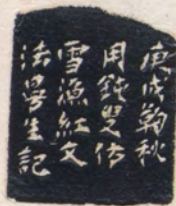 庚戌菊秋
用鈍叟仿
雪漁紅文
法學生記